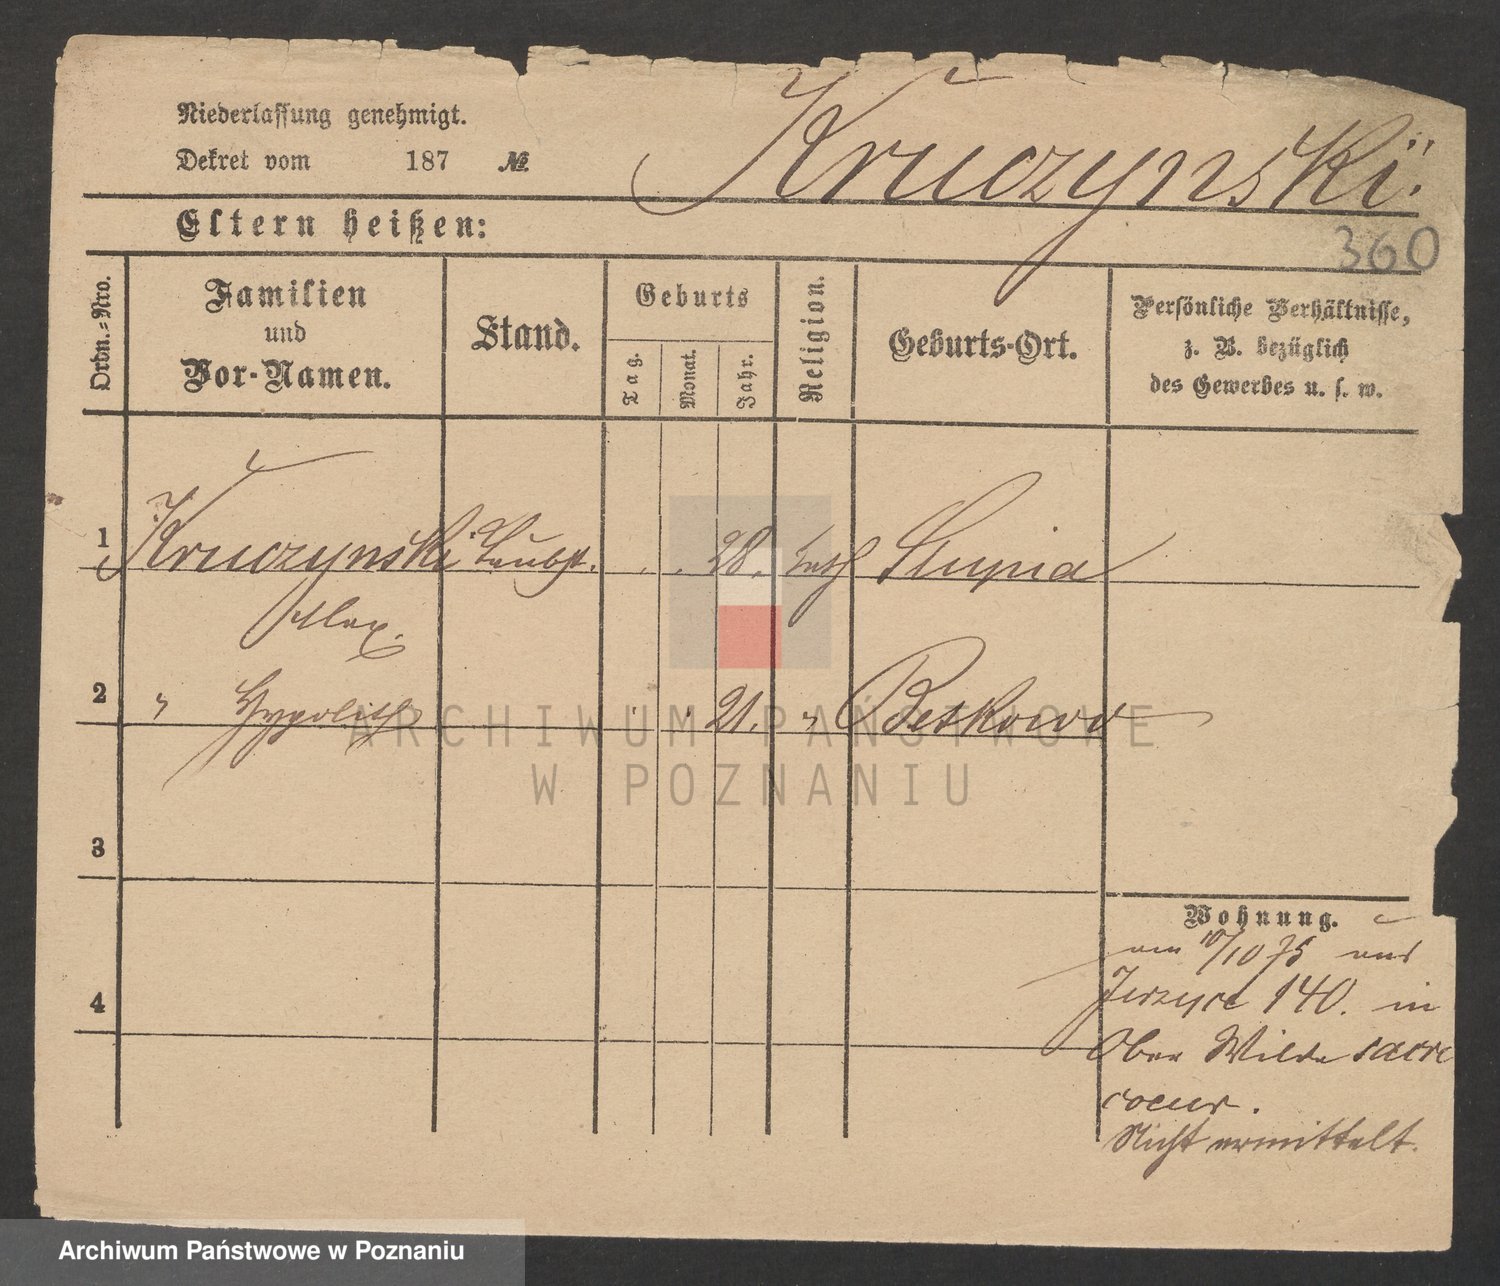 Niederlassung genehmigt.
Dekret vom 187 №.
Kruczynski.
Eltern heißen:
360
Ordn.=Nro.
Familien
und
Vor-Namen.
Stand.
Geburts
Tag.
Monat.
Jahr.
Religion.
Geburts-Ort.
Persönliche Verhältnisse,
z. B. bezüglich
des Gewerbes u. s. w.
1 Kruczynski 28. kath Slupia
Alex.
2 " Hypolith 21. " Betkowo
3
4
Wohnung.
am 10/10 75 aus
Jerzyce 140. in
Ober Wilda sacre
coeur.
Nicht ermittelt.
ARCHIWUM PAŃSTWOWE
W POZNANIU
Archiwum Państwowe w Poznaniu